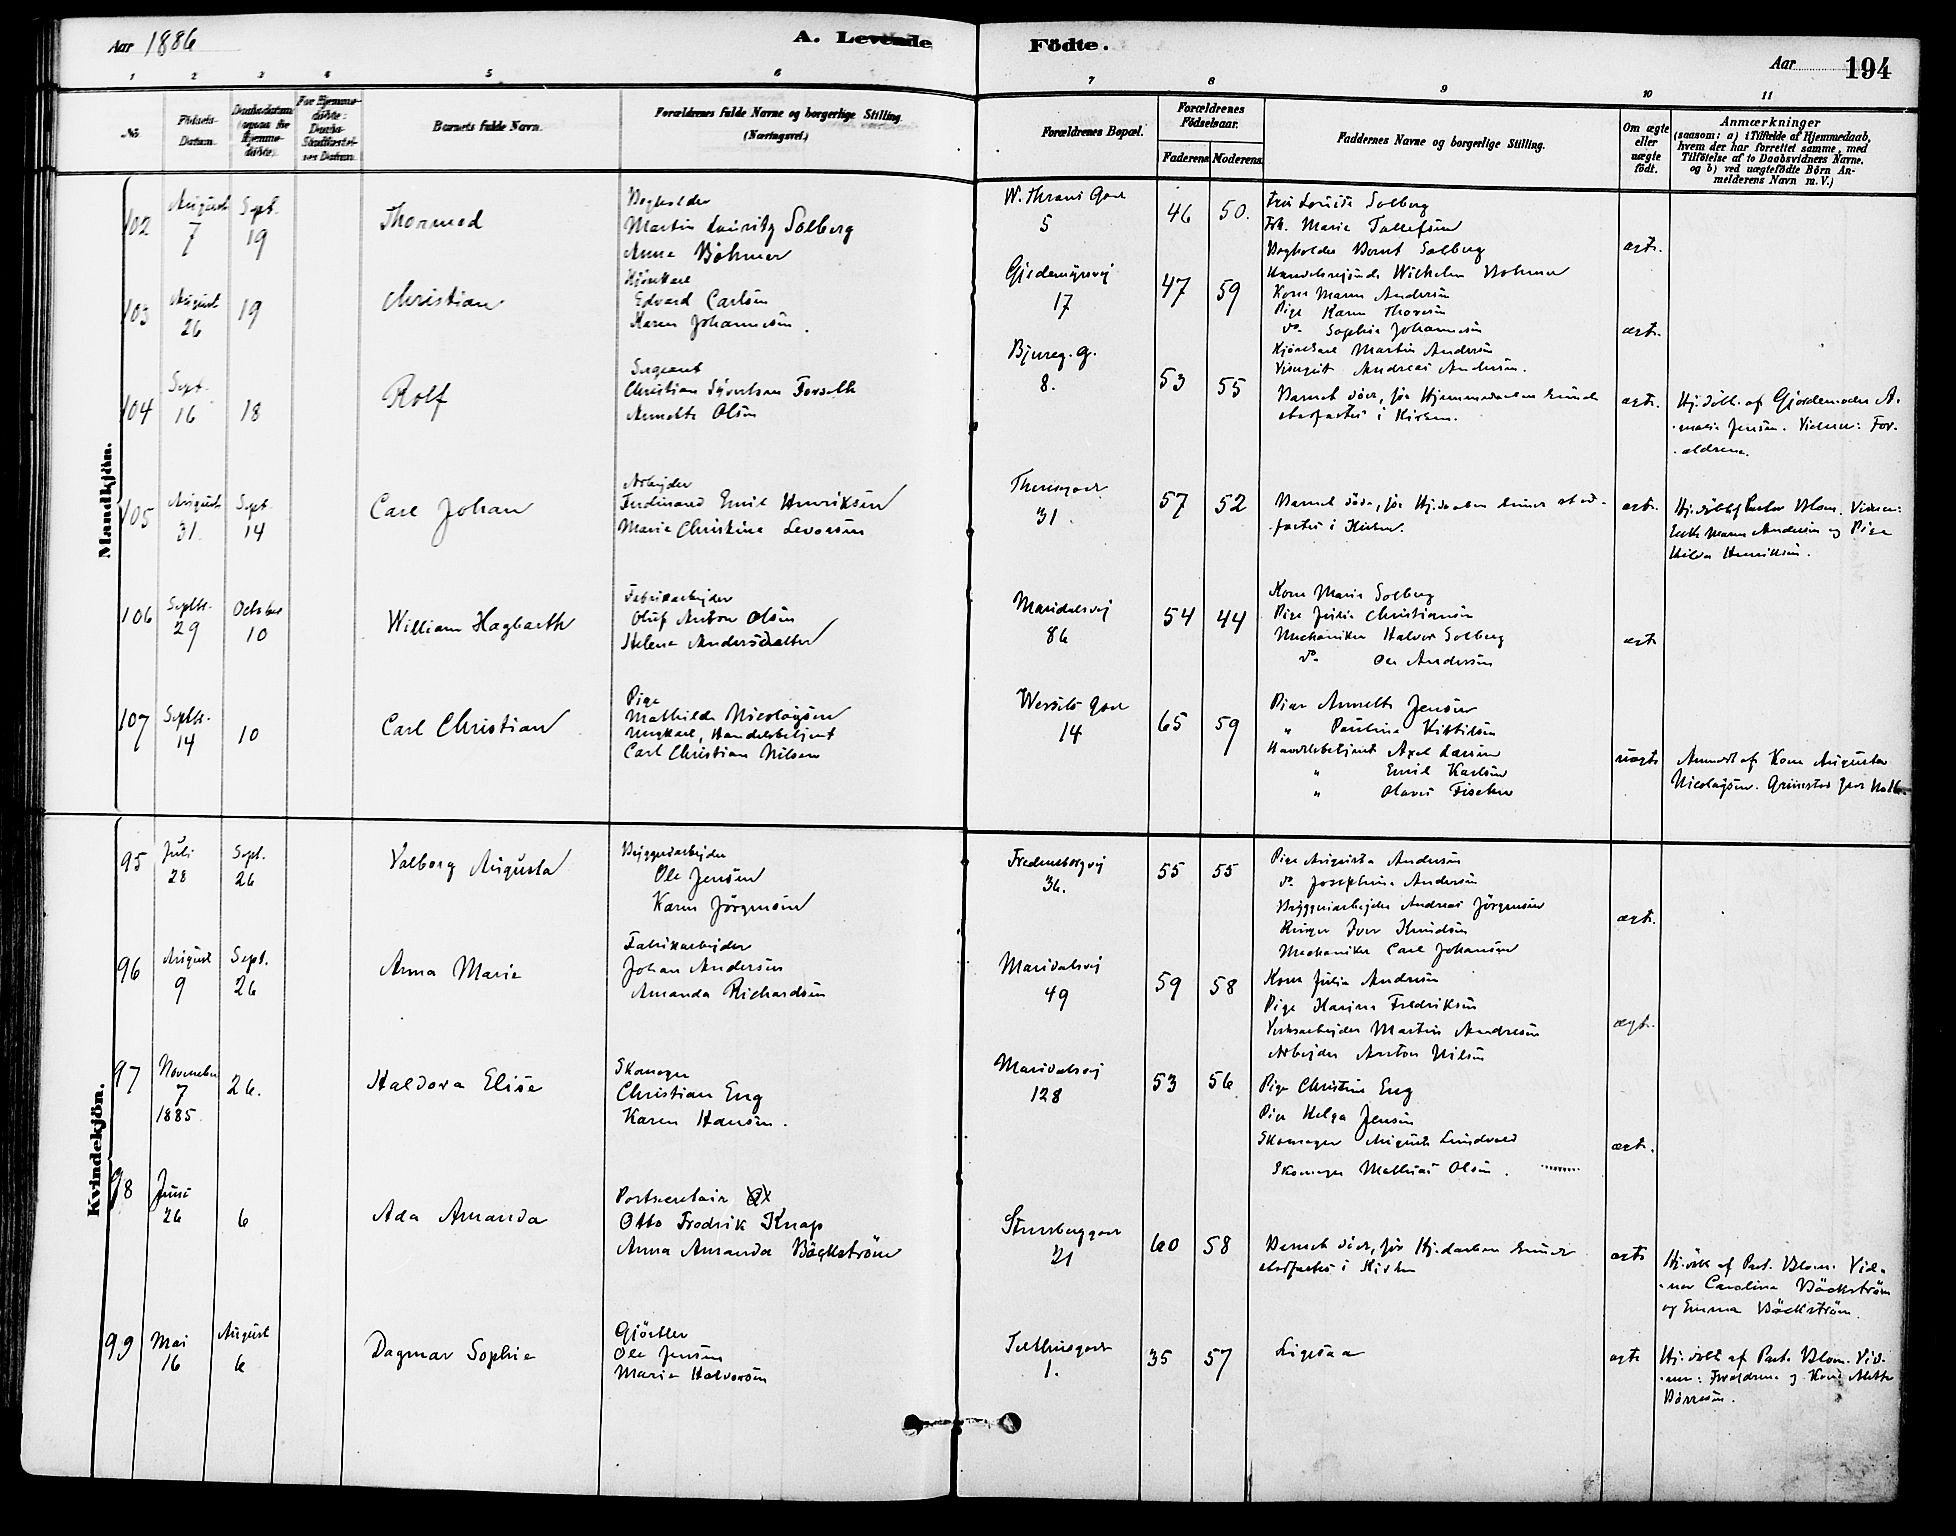 Aar 1886
A. Levende
Födte.
Aar 194
1 2 3 4 5 6 7 8 9 10 11
No
Födsels-
Datum.
Barnets fulde Navn.
Forældrenes fulde Navne og borgerlige Stilling.
(Næringsvei.)
Forældrenes Bopæl.
Forældrenes
Födselsaar.
Faderens Moderens
Faddernes Navne og borgerlige Stilling.
Om ægte
eller
uægte
födt.
Anmærkninger
(saasom: a) i Tilfælde af Hjemmedaab,
hvem der har forrettet samme, med
Tilföielse af to Daabsvidners Navne.
og b) ved uægtefödte Börn An-
melderens Navn m. V.)
Mandkjön.
102
August
7
Sept.
19
Thormod
Bogholder
Martin Lauritz Solberg
Anna Böhmer
W. Thranes Gade
5
46 50.
Fru Louise Solberg
Frk. Marie Tollefsen
Bogholder Bernt Solberg
Wilhelm Bohmer
ægte.
103
August
26
19
Christian
Kjörekarl
Edvard Carlsen
Karen Johannesen.
17
47 59
Kone Maren Andersen
Pige Karen Thoresen
do. Sophie Johannesen
Kjörekarl Martin Andersen
Andreas Andersen.
ægte.
104
Sept.
16
18
Rolf
Sergeant
Christian Sivertsen Forseth
Annette Olsen
Bjereg. g.
8.
53 55
Barnet döde, för Hjemmedaaben kunde
stadfæstes i Kirken.
ægte.
Hj.döbt. af Gjordemoder A-
malie Jensen. Vidner: For-
ældrene.
105
August
31.
Sept.
14
Carl Johan
Arbejder
Ferdinand Emil Henriksen
Marie Christine Levorsen
31.
57 52
Barnet döde, för Hj.daaben kunde stad-
fæstes i Kirken.
ægte.
Hj.döbt af Pastor Blom. Vidner:
Enke Maren Andersen og Pige
Hilda Henriksen.
106
Septbr.
29
October
10
William Hagbarth
Fabrikarbejder
Oluf Anton Olsen
Helene Andersdatter
Maridalsvej
86
54 44
Kone Marie Solberg
Pige Julie Christiansen
Mechaniker Halvor Solberg
do. Ole Andersen
ægte
107
Septbr.
14
10
Carl Christian
Pige
Mathilde Nicolaysen
Ungkarl, Handelsbetjent
Carl Christian Nilsen
Wessels Gade
14
65 59
Pige Annette Jensen
" Pauline Kittilsen
Handelsbetjent Axel Larsen
" Emil Karlsen
" Olaves Fischer
uægte
Anmeldt af Kone Augusta
Nicolaysen. Grünstad gade No 16.
Kvindekjön.
95
Juli
28
Sept.
26
Valborg Augusta
Bryggeriarbejder
Ole Jensen
Karen Jörgensen
Fredensborgvej
36.
55 55
Pige Augusta Andersen
do. Josephine Andersen
Bryggeriarbejder Andreas Jörgensen
Iver Knudsen
Mechaniker Carl Johansen
ægte.
96
August
9
Sept.
26
Anna Marie
Fabrikarbejder
Johan Andersen
Amanda Richardsen
Maridalsvej
49
59 58
Kone Julia Andersen
Pige Karine Fredriksen
Værksarbejder Martin Andresen
Arbejder Anton Nilsen
ægte.
97
November
7
1885.
26.
Haldora Elise
Skomager
Christian Eng
Karen Hansen.
Maridalsvej
128
53 56
Pige Christine Eng
Pige Helga Jensen
Skomager August Lundvald
Skomager Mathias Olsen.
ægte.
98
Juni
26
6
Ada Amanda
Postsecretair
Otto Fredrik Knap
Anna Amanda Bäckström
Stensberggade
21
60 58
Barnet döde, för Hj.daaben kunde
stadfæstes i Kirken
ægte
Hj.döbt af Past. Blom. Vid-
ner Carolina Bäckström
og Emma Bäckström.
99
Mai
16
August
6
Dagmar Sophie
Gjörtler
Ole Jensen
Marie Halvorsen
Telthusgade
1.
35 57
Ligesaa
ægte
Hj.döbt af Past. Blom. Vid-
ner: Forældrene og Kone Alette
Börresen.